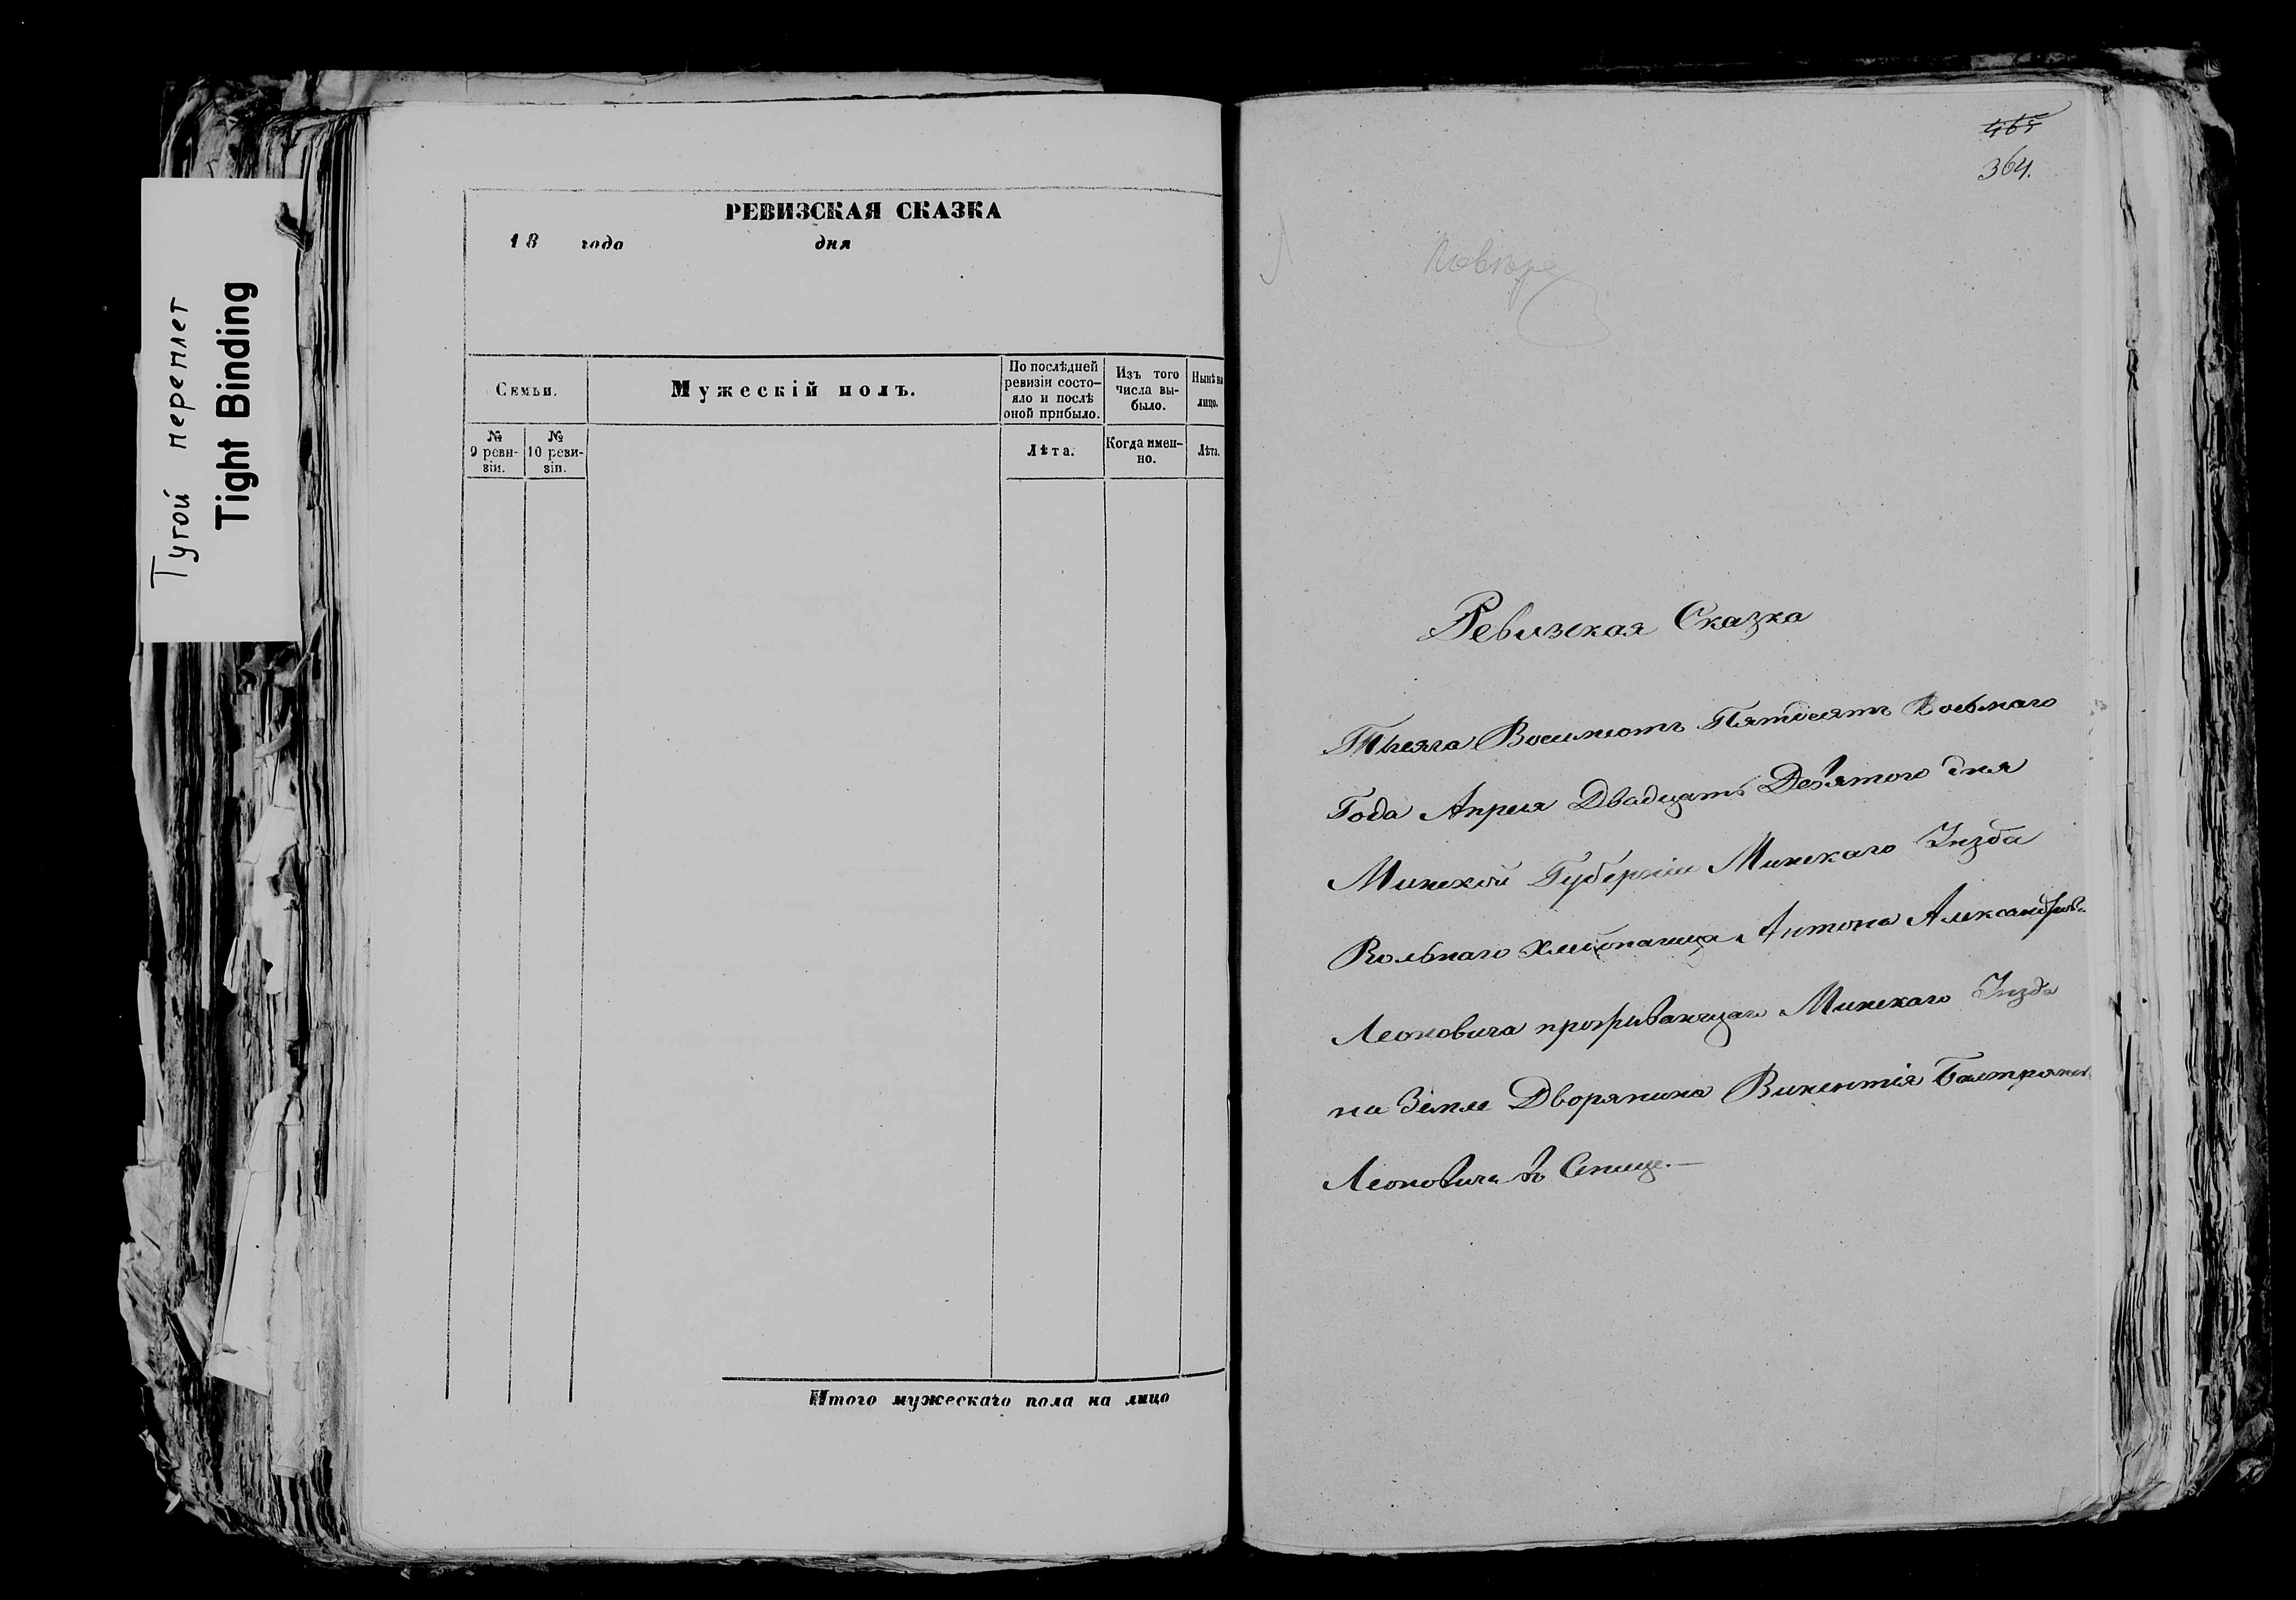 Тугой переплет
Tight Binding
РЕВИЗСКАЯ СКАЗКА
18 года дня
Семьи.
Мужескій полъ.
По послѣдней
ревизіи состо-
яло и послѣ
оной прибыло.
Изъ того
числа вы-
было.
Нынѣ на
лицо.
№
9 реви-
зіи.
№
10 реви-
зіи.
Лѣта.
Когда имен-
но.
Лѣта.
Итого мужескаго пола на лицо
465
364.
Ревизская Сказка
Тысяча Восимсотъ Пятдесятъ Восьмаго
Года Апреля Двадцать Девятого дня
Минской Губерніи Минскаго Уезда
Вольнаго Хлебопашца Антона Александрова
Леоновича проживающаго Минскаго Уезда
на Земле Дворянина Викентія
Леоновича въ Сенице.—